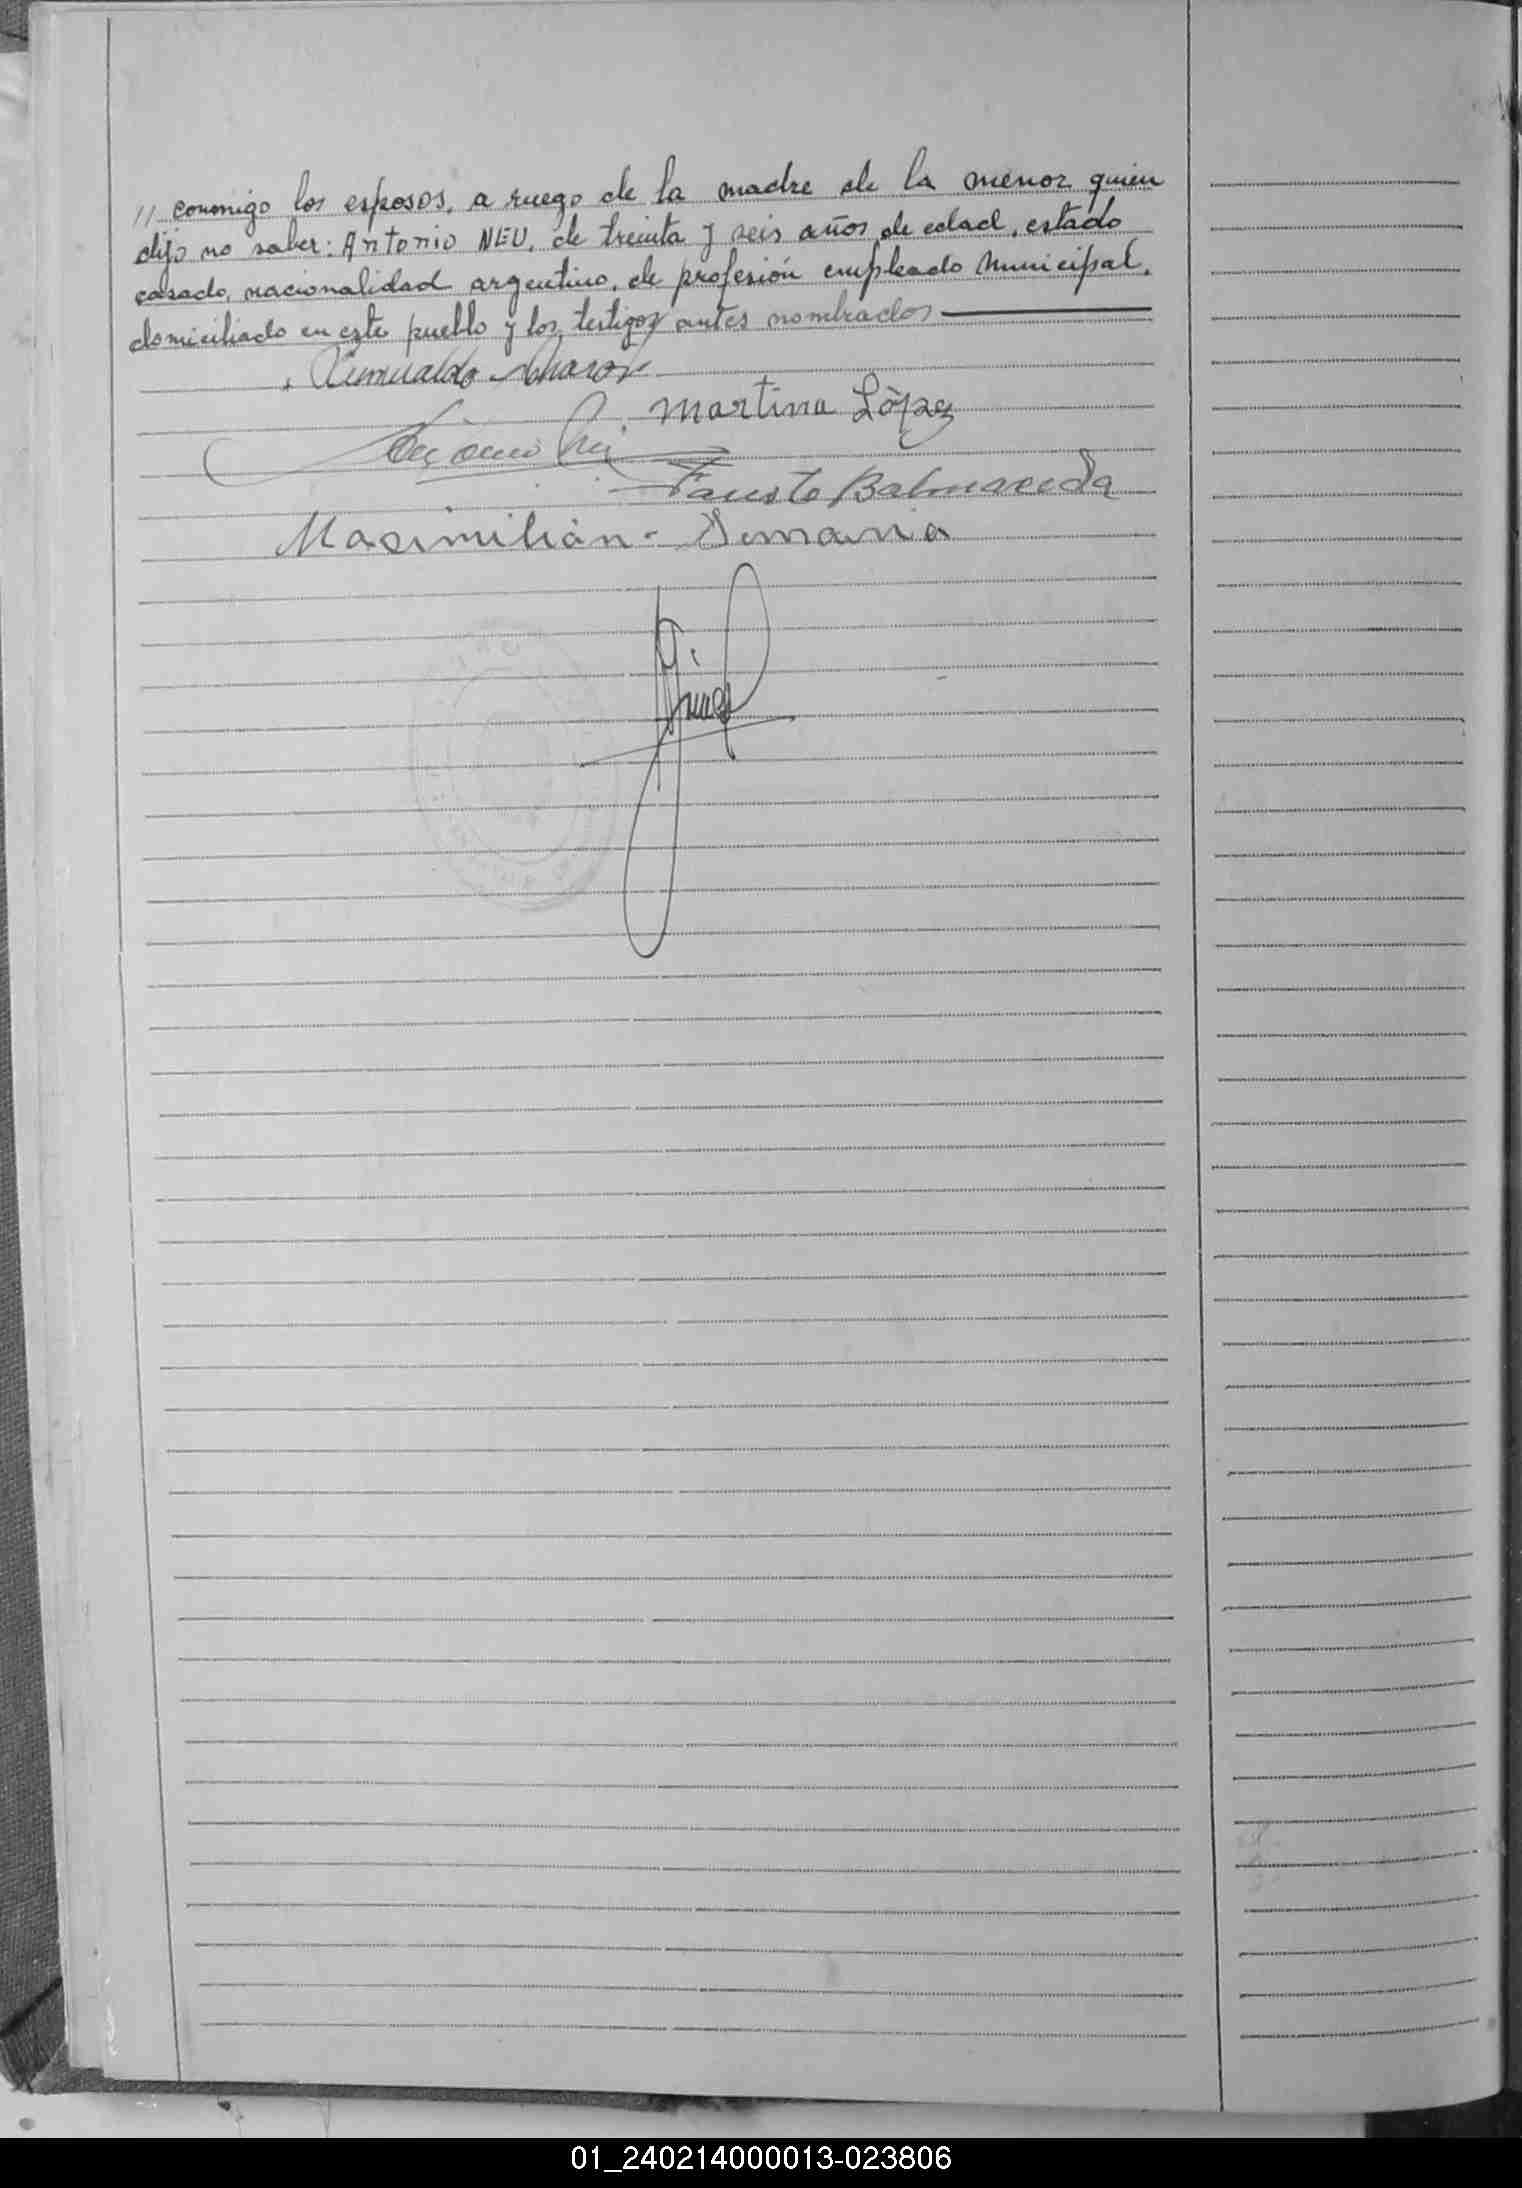 // conmigo los esposos, a ruego de la madre de la menor quien
dijo no saber: Antonio NEU, de treinta y seis años de edad, estado
casado, nacionalidad argentino, de profesión empleado Municipal,
domiciliado en este pueblo y los testigos antes nombrados
Martina López
Fausto Balmaceda
Maximilián
01_240214000013-023806